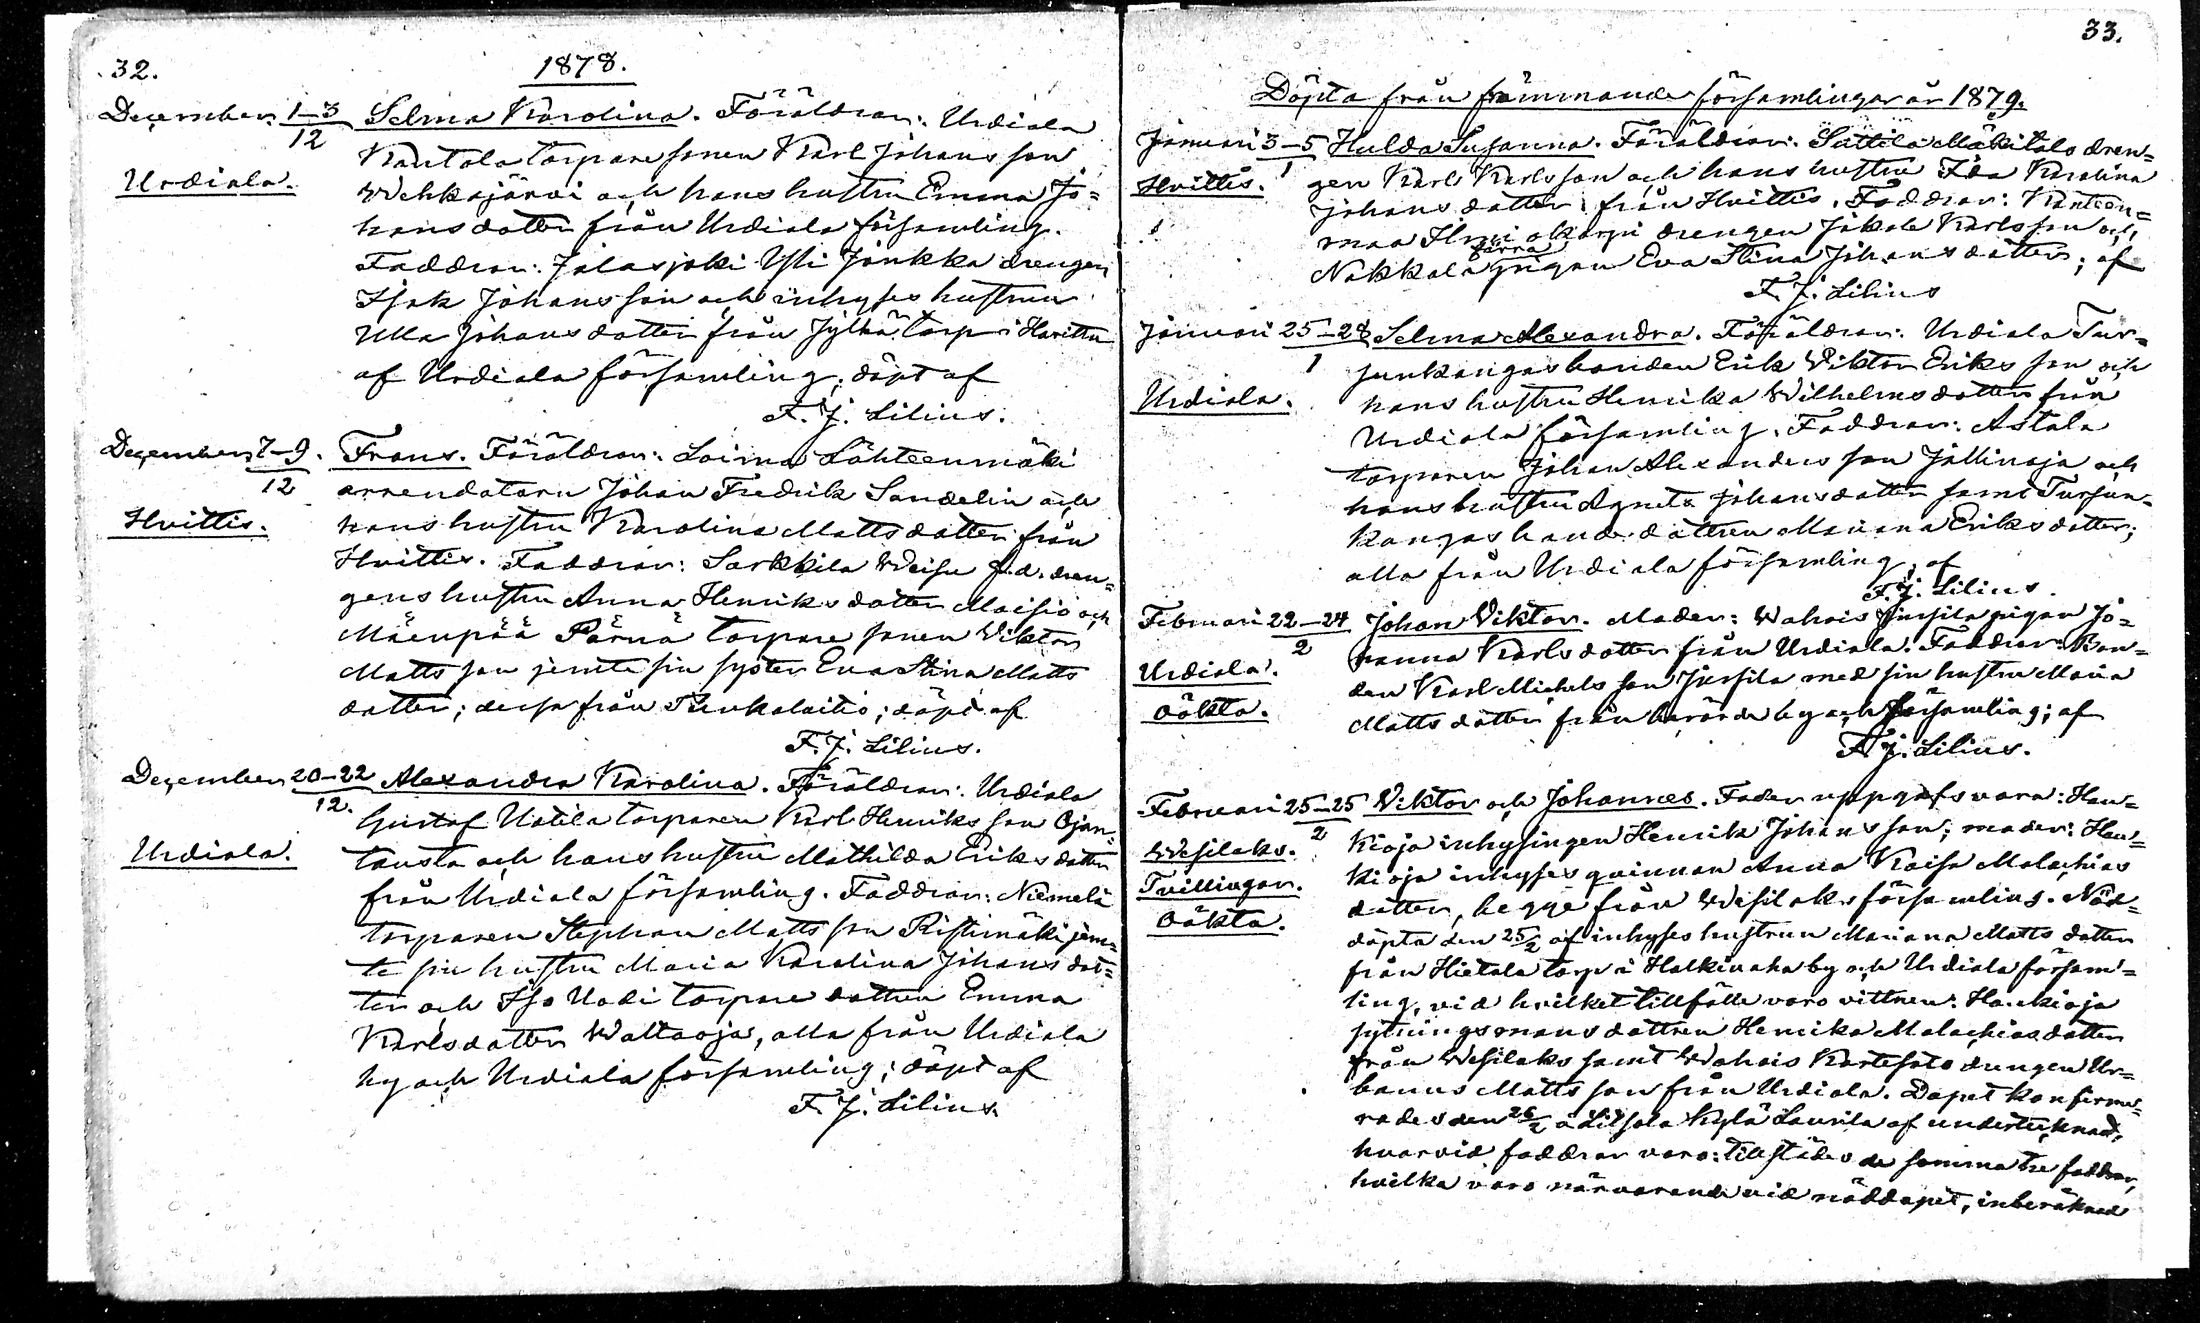 32.
1878.
December 1–3/12 Selma Karolina. Föräldrar: Urdiala
Kantola torparesonen Karl Johansson
Urdiala.
Wehkajärvi och hans hustru Emma Jo=
hansdotter från Urdiala församling.
Faddrar: Jalasjoki Yli Jönkkä drengen
Isak Johansson och inhyses hustrun
Ulla Johansdotter från Jylhä torp i Haritu
af Urdiala församling; döpt af
F. J. Lilius.
December 7–9/12. Frans. Föräldrar: Loima Lähteenmäki
arrendatorn Johan Fredrik Sandelin och
Hvittis.
hans hustru Karolina Mattsdotter från
Hvittis. Faddrar: Sarkkila Weisu f.d. dren=
gens hustru Anna Henriksdotter Maisio och
Mäenpää Pärnä torpare sonen Viktor
Mattsson jemte sin syster Eva Stina Matts
dotter; dessa från Punkalaitio; döpt af
F. J. Lilius.
December 20–22/12. Alexandra Karolina. Föräldrar: Urdiala
Gustaf Uotila torparen Karl Henriksson Ojan=
Urdiala.
tausta och hans hustru Mathilda Eriksdotter
från Urdiala församling. Faddrar: Niemelä
torparen Stephan Mattsson Ristimäki jem=
te sin hustru Maria Karolina Johansdot=
ter och Iso Uodi torpare dottren Emma
Karlsdotter Waltaoja, alla från Urdiala
by och Urdiala församling; döpt af
F. J. Lilius.
33.
Döpta från främmande församlingar år 1879.
Januari 3–5/1 Hulda Susanna. Föräldrar: Suttila Mäkitalo dren=
Hvittis.
gen Karl Karlsson och hans hustru Ida Karolina
Johansdotter från Hvittis. Faddrar: Kanteen=
maa drengen Jakob Karlsson och
Nokkala Pärnä pigan Eva Stina Johansdotter; af
F. J. Lilius
Januari 25–28/1 Selma Alexandra. Föräldrar: Urdiala Tur=
junkangas bonden Erik Viktor Eriksson och
Urdiala.
hans hustru Henrika Wilhelmsdotter från
Urdiala församling. Faddrar: Astala
torparen Johan Alexandersson Jallinoja och
hans hustru Agneta Johansdotter samt Turjun=
kangas bonde dottren Mariana Eriksdotter;
alla från Urdiala församling; af
F. J. Lilius.
Februari 22–24/2 Johan Viktor. Moder: Wahois Jussila pigan Jo=
hanna Karlsdotter från Urdiala. Faddrar: Bon=
Urdiala.
den Karl Michelsson Jussila med sin hustru Maria
oäkta.
Mattsdotter från berörde by och församling; af
F. J. Lilius.
Februari 25–25/2 Viktor och Johannes. Fader uppgafs vara: Hau=
Wesilaks.
kioja inhysingen Henrik Johansson; moder: Hau=
Tvillingar.
kioja inhyses qvinnan Anna Kaisa Malachias
oäkta.
dotter, begge från Wesilaks församling. Nöd=
döpta den 25/2 af inhyses hustrun Mariana Mattsdotter
från Hietala torp i Halkivaha by och Urdiala försam=
ling, vid hvilket tillfälle voro vittnen: Haukioja
sytningsmans dottren Henrika Malachiasdotter
från Wesilaks samt Wahois Kartesalo drengen Ur=
banus Mattsson från Urdiala. Dopet konfirme=
rades den 26/2 å Litsola Kylä Laurila af undertecknad,
hvarvid faddrar voro: tillstädes de samma tre faddrar,
hvilka voro närvarande vid nöddopet, inberäknad